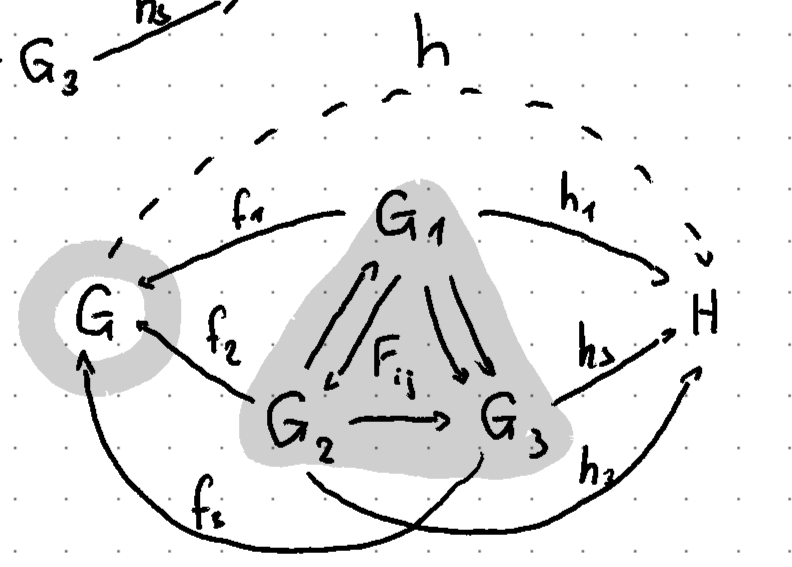 h₃
G₃
h
f₁
G₁
h₁
G
f₂
F_ij
H
h₃
G₂
G₃
f₃
h₂